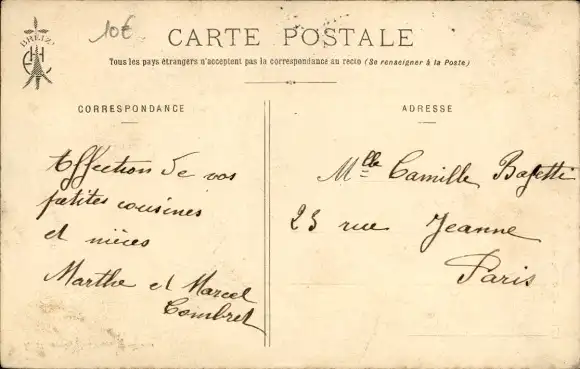 BREIZ
10€
CARTE POSTALE
Tous les pays étrangers n'acceptent pas la correspondance au recto (Se renseigner à la Poste)
CORRESPONDANCE
Affection de vos
petites cousines
et nièces
Marthe et Marcel
Combret
ADRESSE
Mlle Camille Bafetti
23 rue Jeanne
Paris